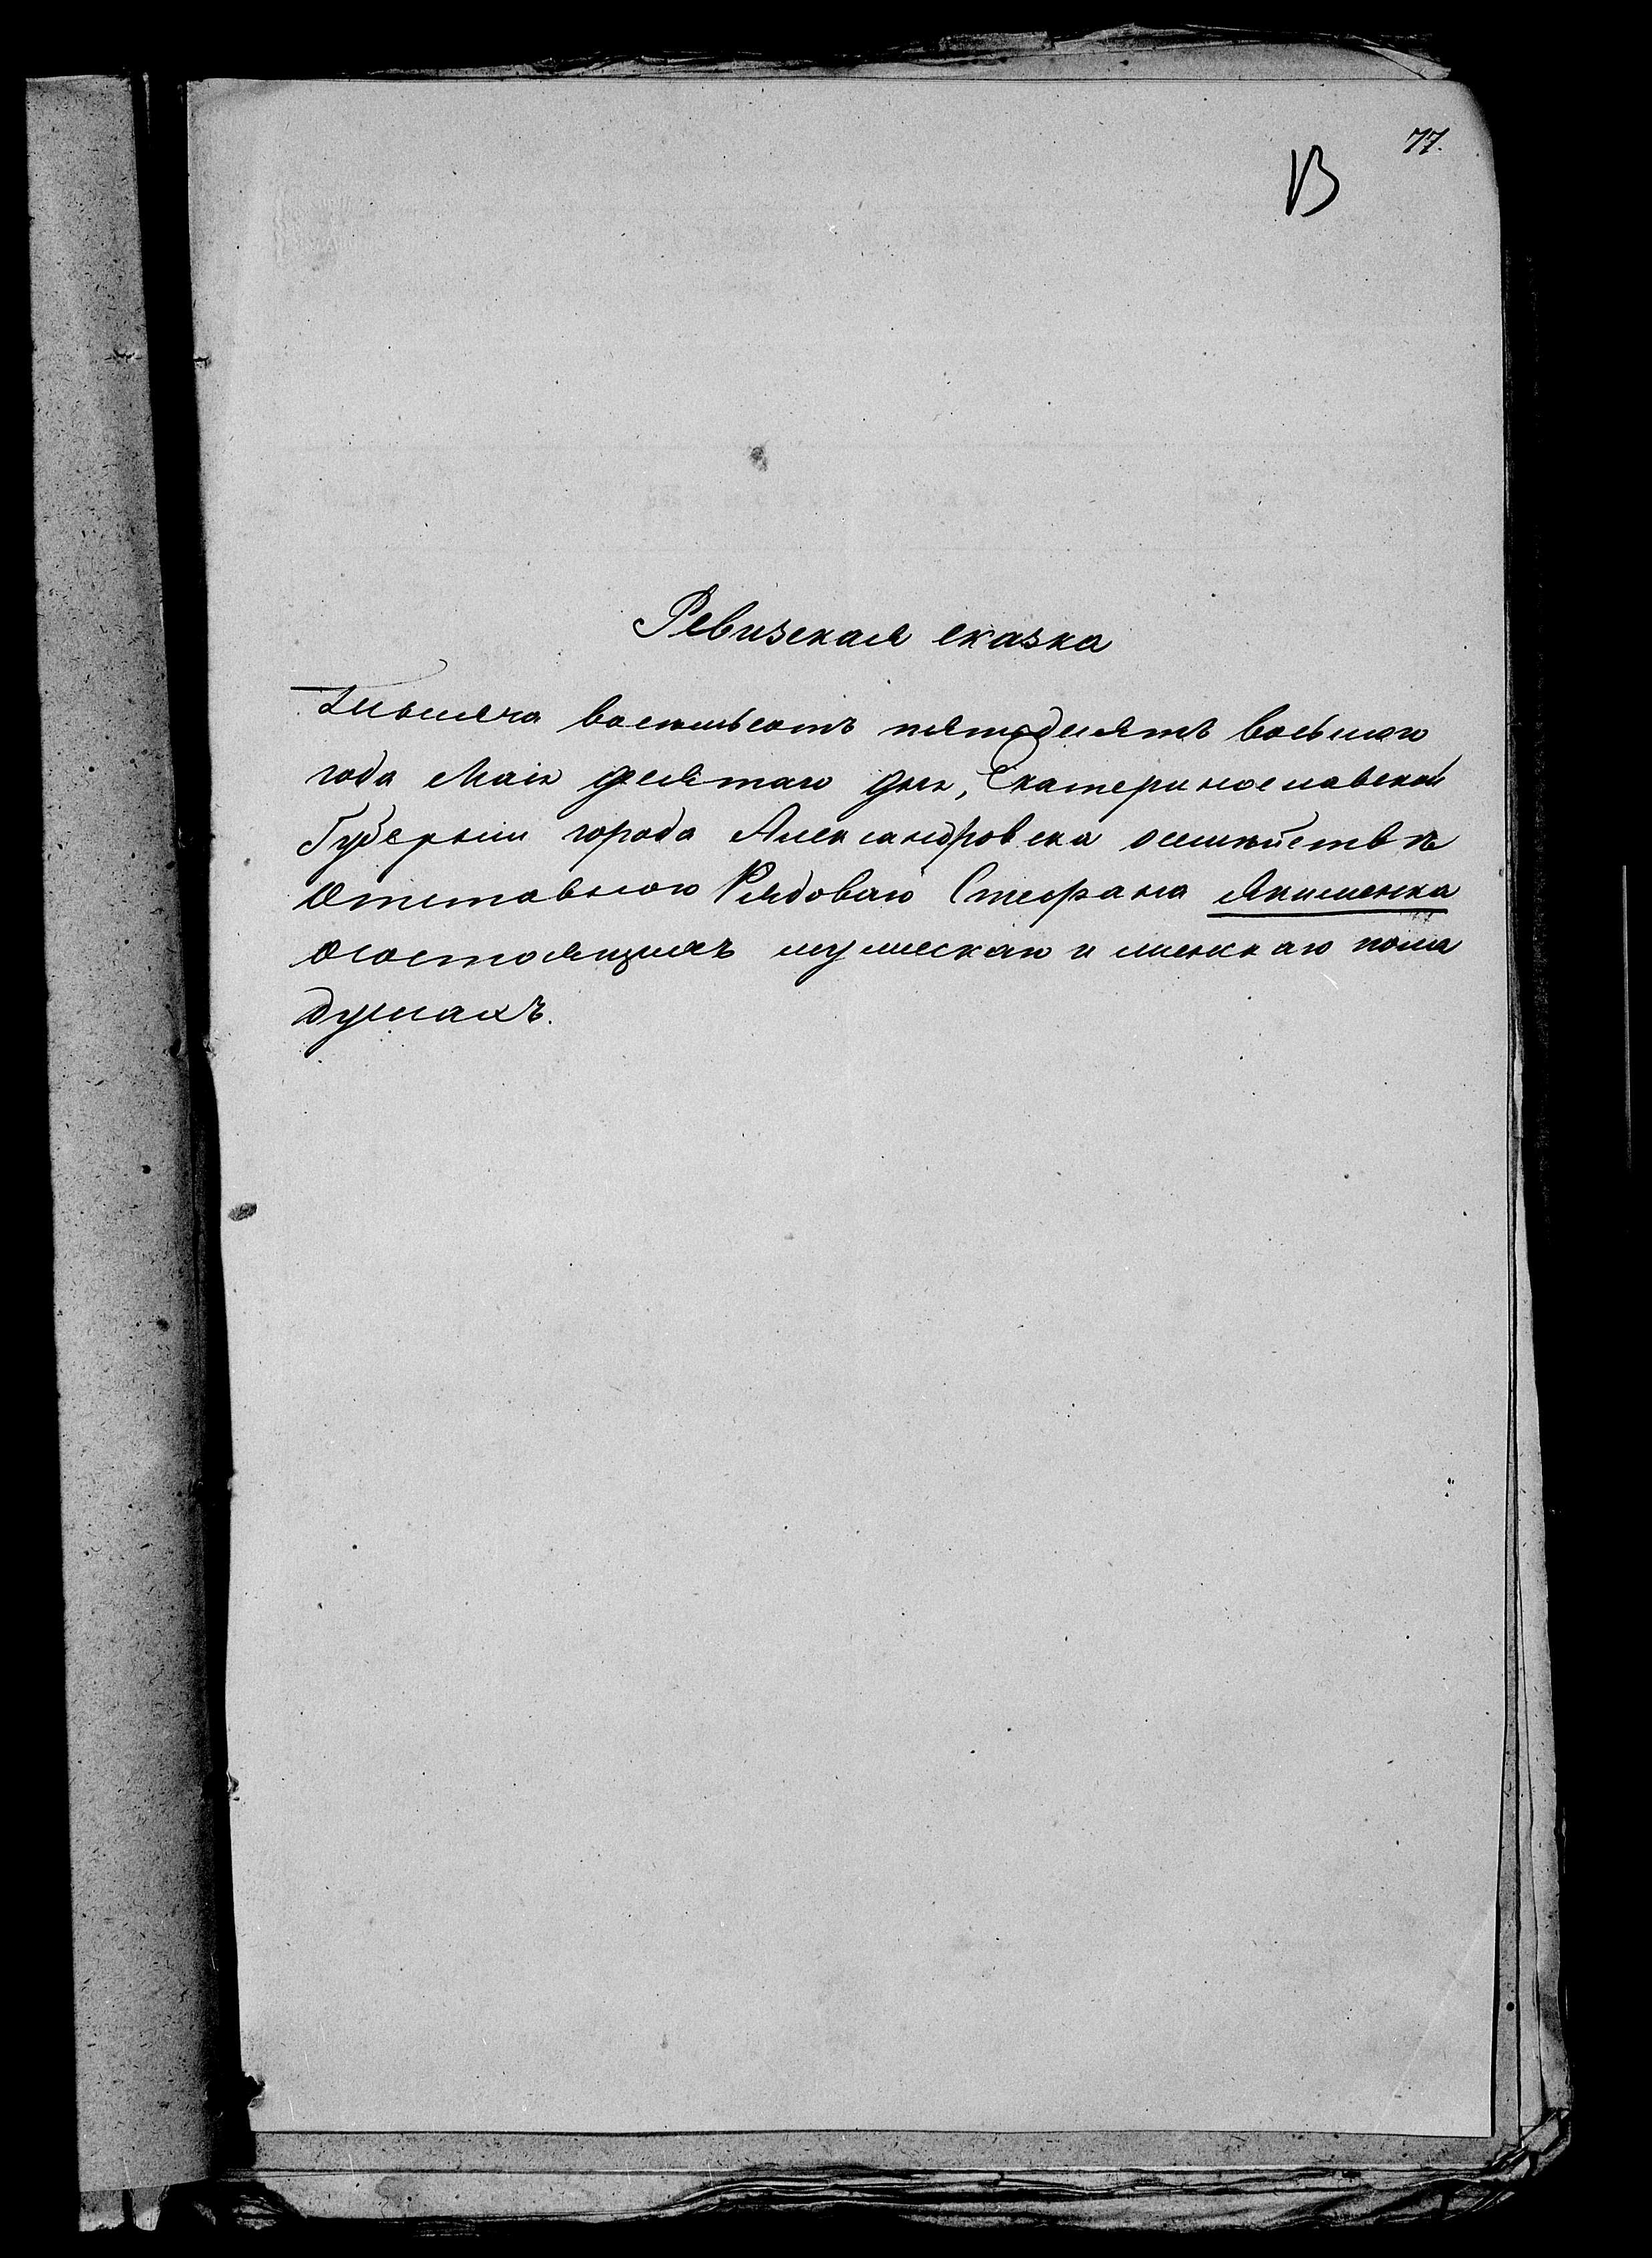 77.
В
Ревизская сказка
Тысяча восемьсотъ пятьдесятъ восьмаго
года Маія десятаго дня, Екатеринославской
Губерніи города Александровска осемѣйствѣ
Отставнаго Рядоваго Стефана Якименка
осостоящихъ мужескаго и женскаго пола
душахъ.